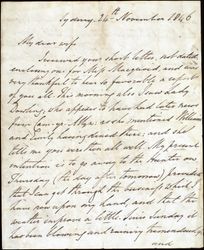 Sydney, 24th November 1846
My dear wife
I received your short letter, not dated,
enclosing one for Miss Macquoid and was
very thankful to have so favorable a report
of you all. This morning also I saw Lady
Dowling, she appears to have had later news
from you, as she mentioned William
and Emily having dined there, and she
tells me you were then all well. My present
intention is to go away to the Hunter on
Thursday (the day after tomorrow) provided
that I can get through the business which I
have now upon my hand, and that the
weather improve a little. Since Sunday it
has been blowing and raining tremendously,
and